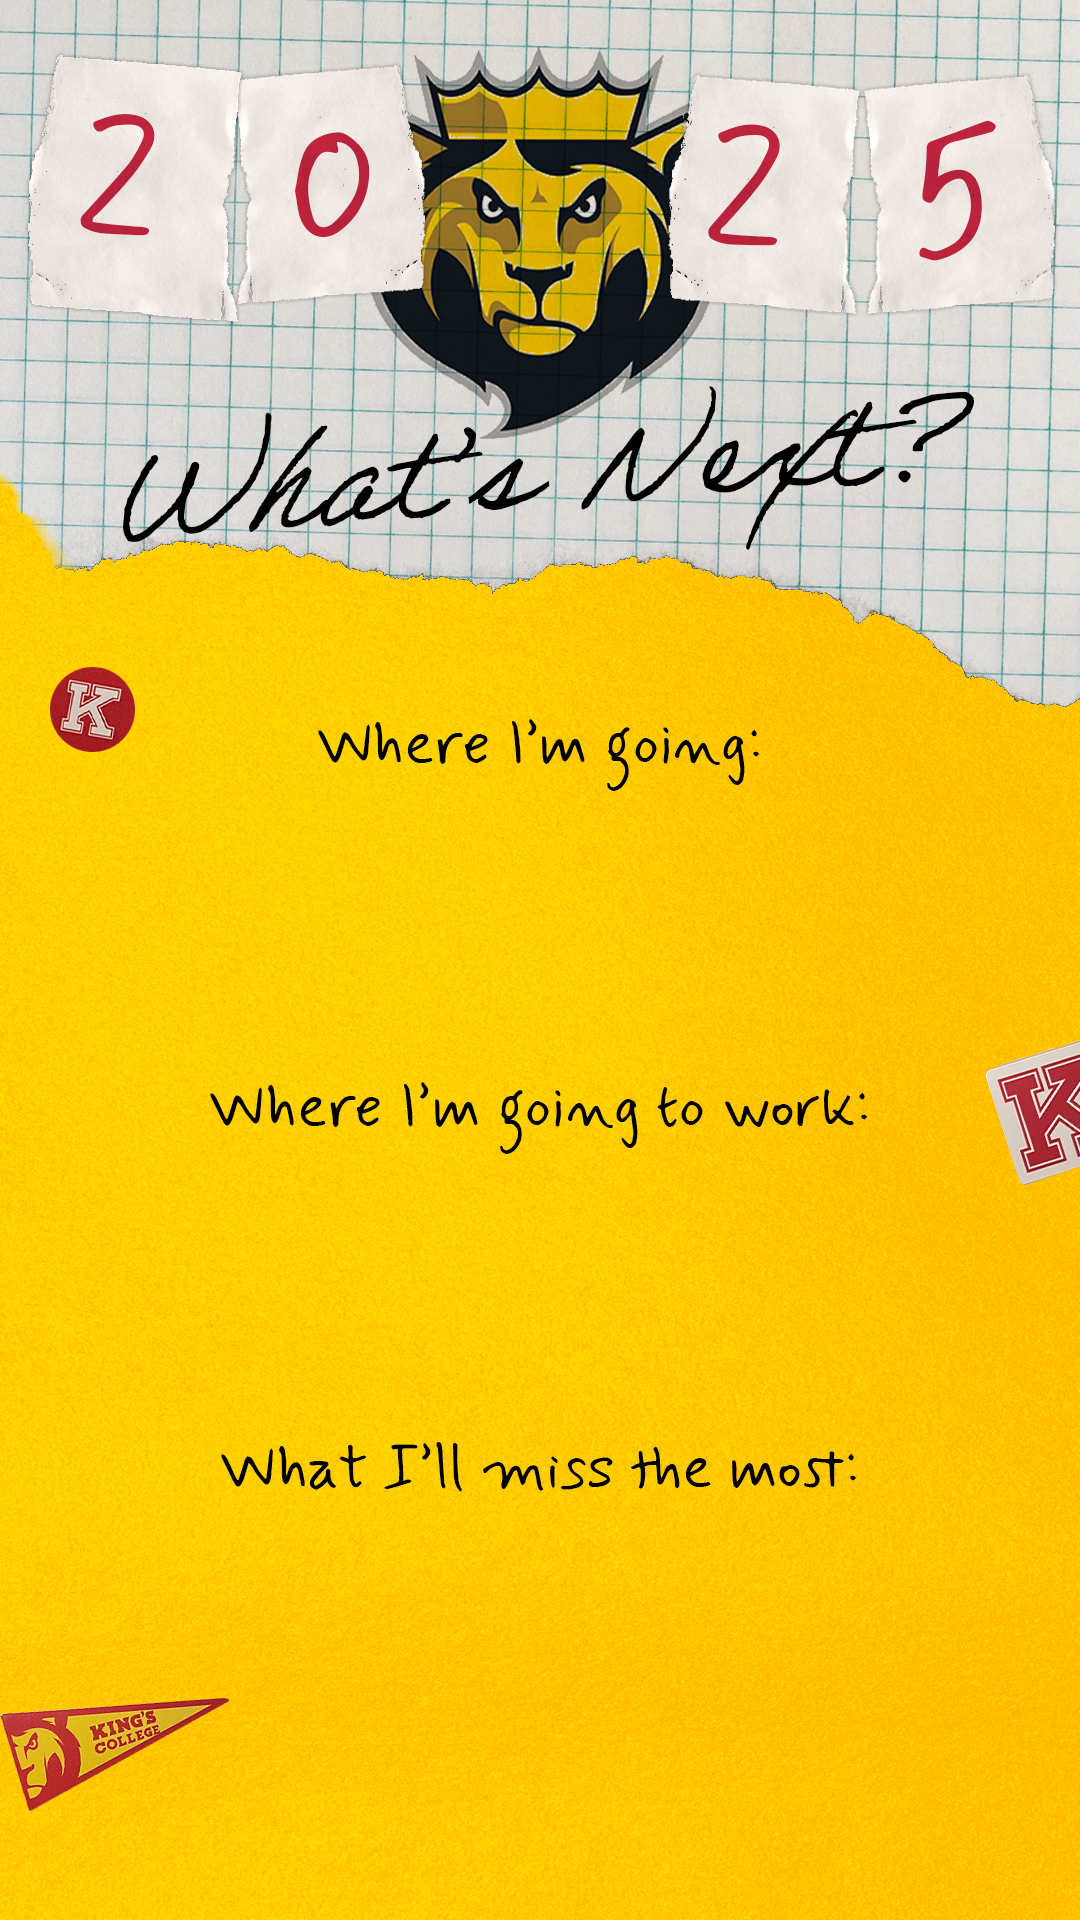 2025
What's Next?
K
Where I'm going:
K
Where I'm going to work:
What I'll miss the most:
KING'S
COLLEGE